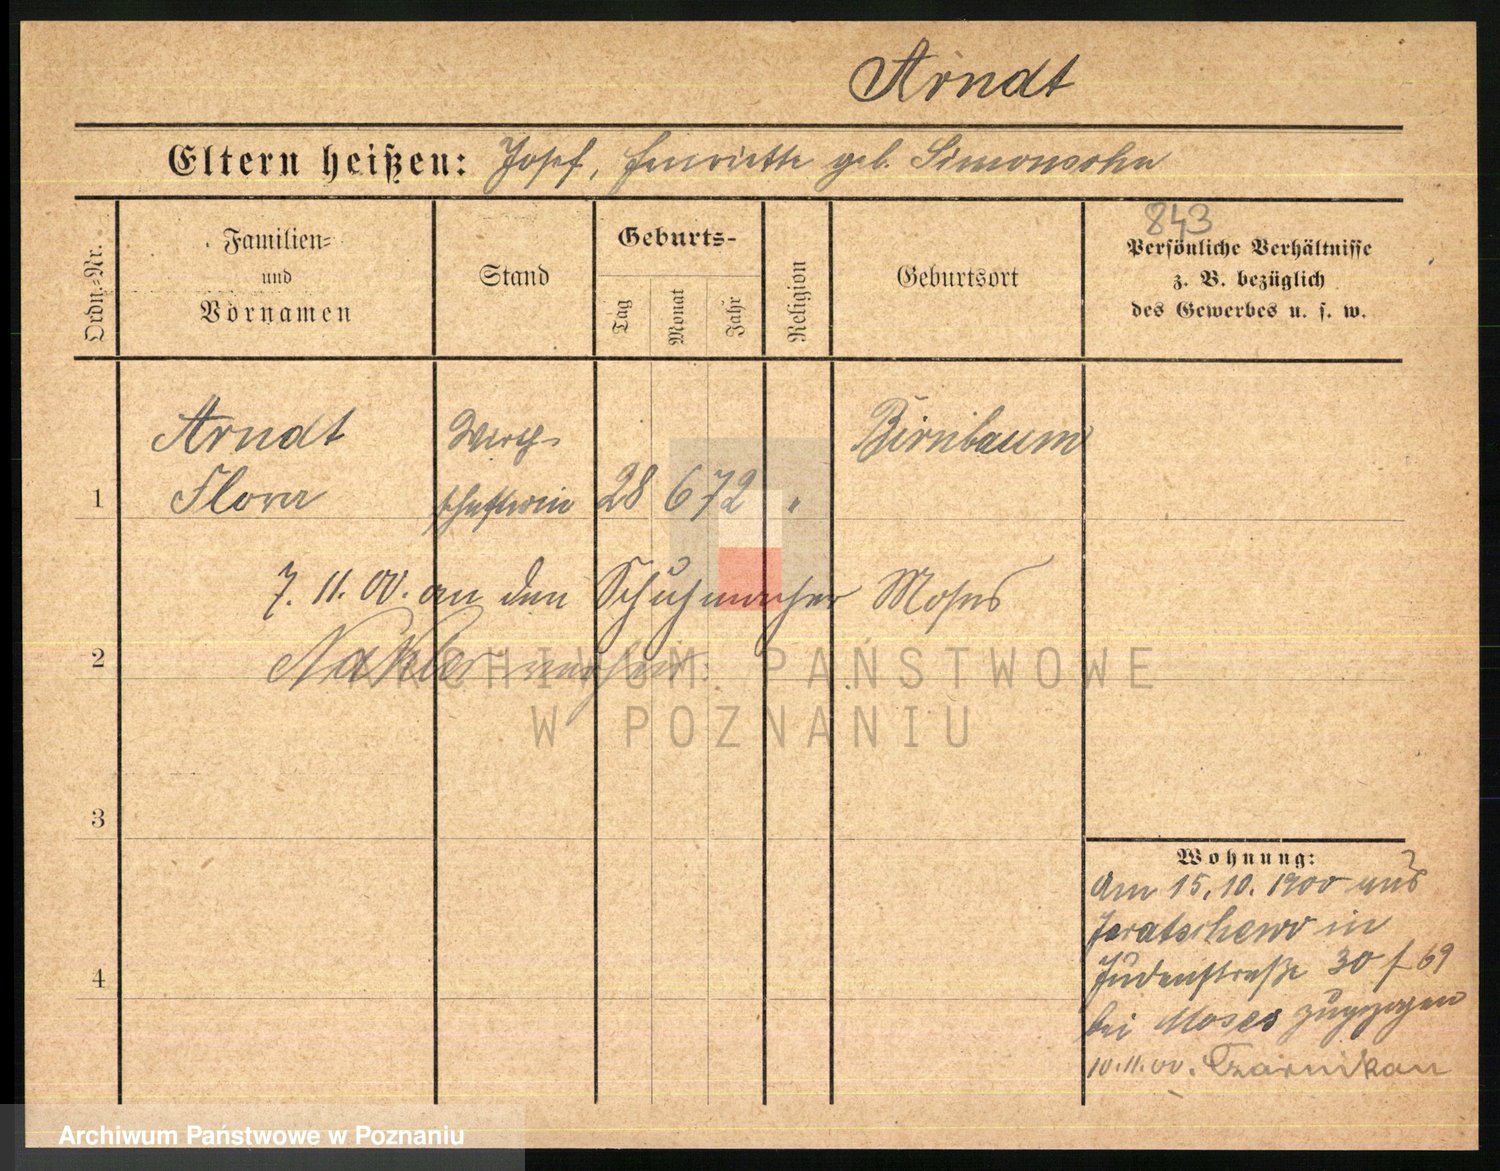 Arndt
Eltern heißen: Josef, Henriette geb. Simonsohn
Ordn.-Nr.
Familien-
und
Vornamen
Stand
Geburts-
Tag
Monat
Jahr
Religion
Geburtsort
843
Persönliche Verhältnisse
z. B. bezüglich
des Gewerbes u. s. w.
Arndt
Wirth-
Birnbaum
1
Flora
schafterin
28
6
72
"
7. 11. 00. an den Schuhmacher Moses
2
Nakler
ARCHIWUM PAŃSTWOWE
W POZNANIU
3
Wohnung:
Am 15. 10. 1900 aus
Jaratschewo in
4
Judenstraße 30 f 69
bei Moses zugezogen
10. 11. 00. Czarnikau
Archiwum Państwowe w Poznaniu